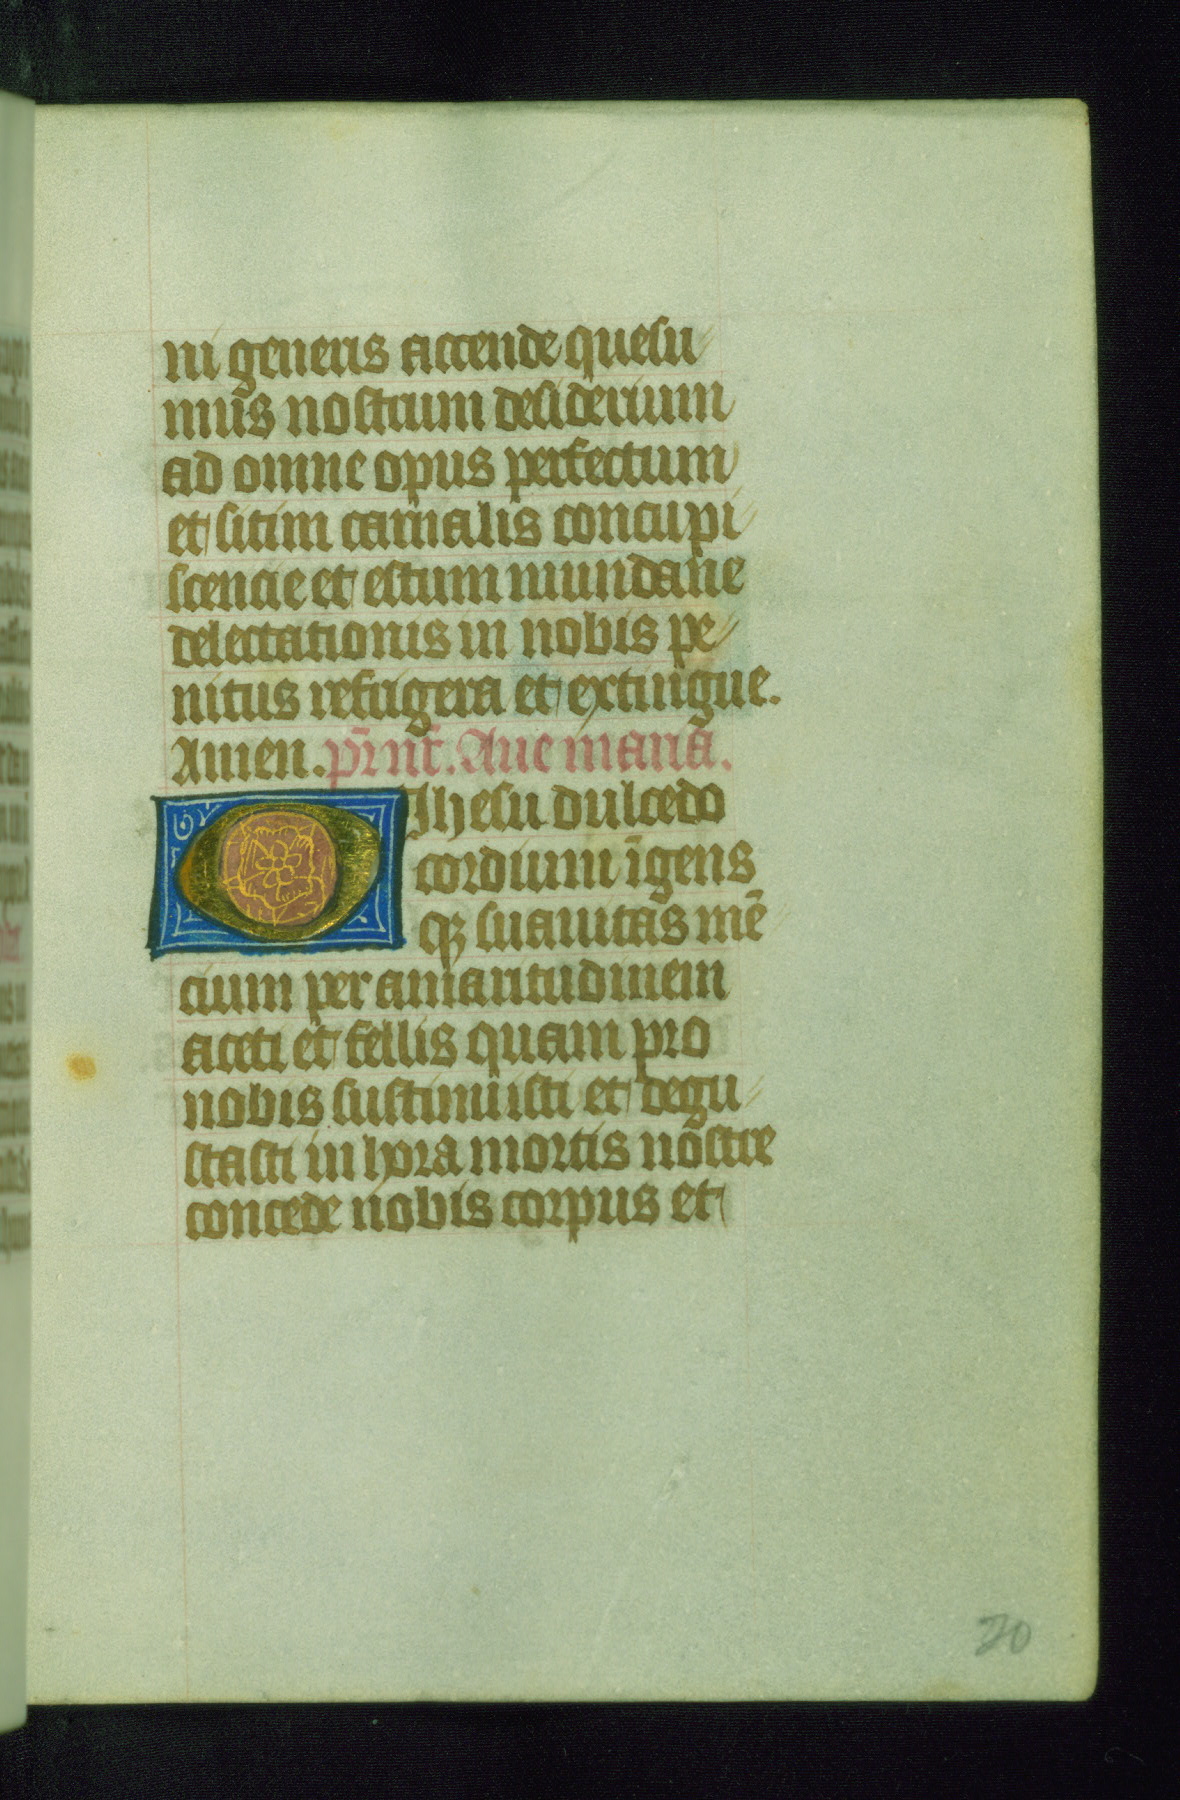 ni generis accende quesu
mus nostrum desiderium
ad omne opus perfectum
et sitim carnalis concupi
scencie et estum mundane
delectationis in nobis pe
nitus refrigera et extingue.
Amen. pr̄ nr̄. Aue maria.
O Jhesu dulcedo
cordium īgens
qꝫ suauitas mē
cium per amaritudinem
aceti et fellis quam pro
nobis sustinuisti et degu
stasti in hora mortis nostre
concede nobis corpus et
20